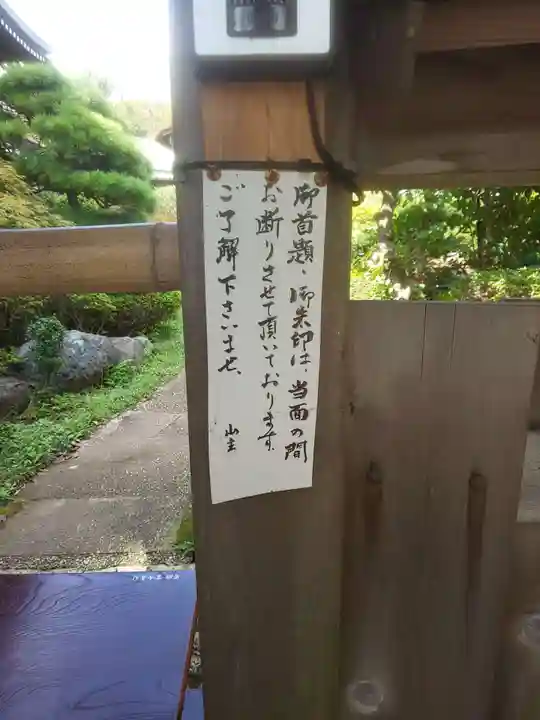 御首題、御朱印は、当面の間
お断りさせて頂いております。
ご了解下さいませ、
山主